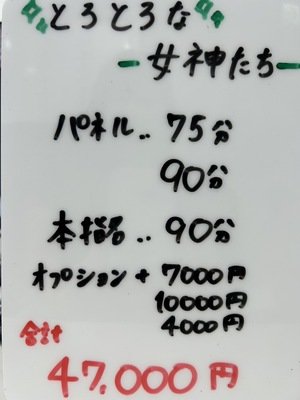 とろとろな
-女神たち-
パネル.. 75分
90分
本指名.. 90分
オプション+ 7000円
10000円
4000円
合計
47,000円